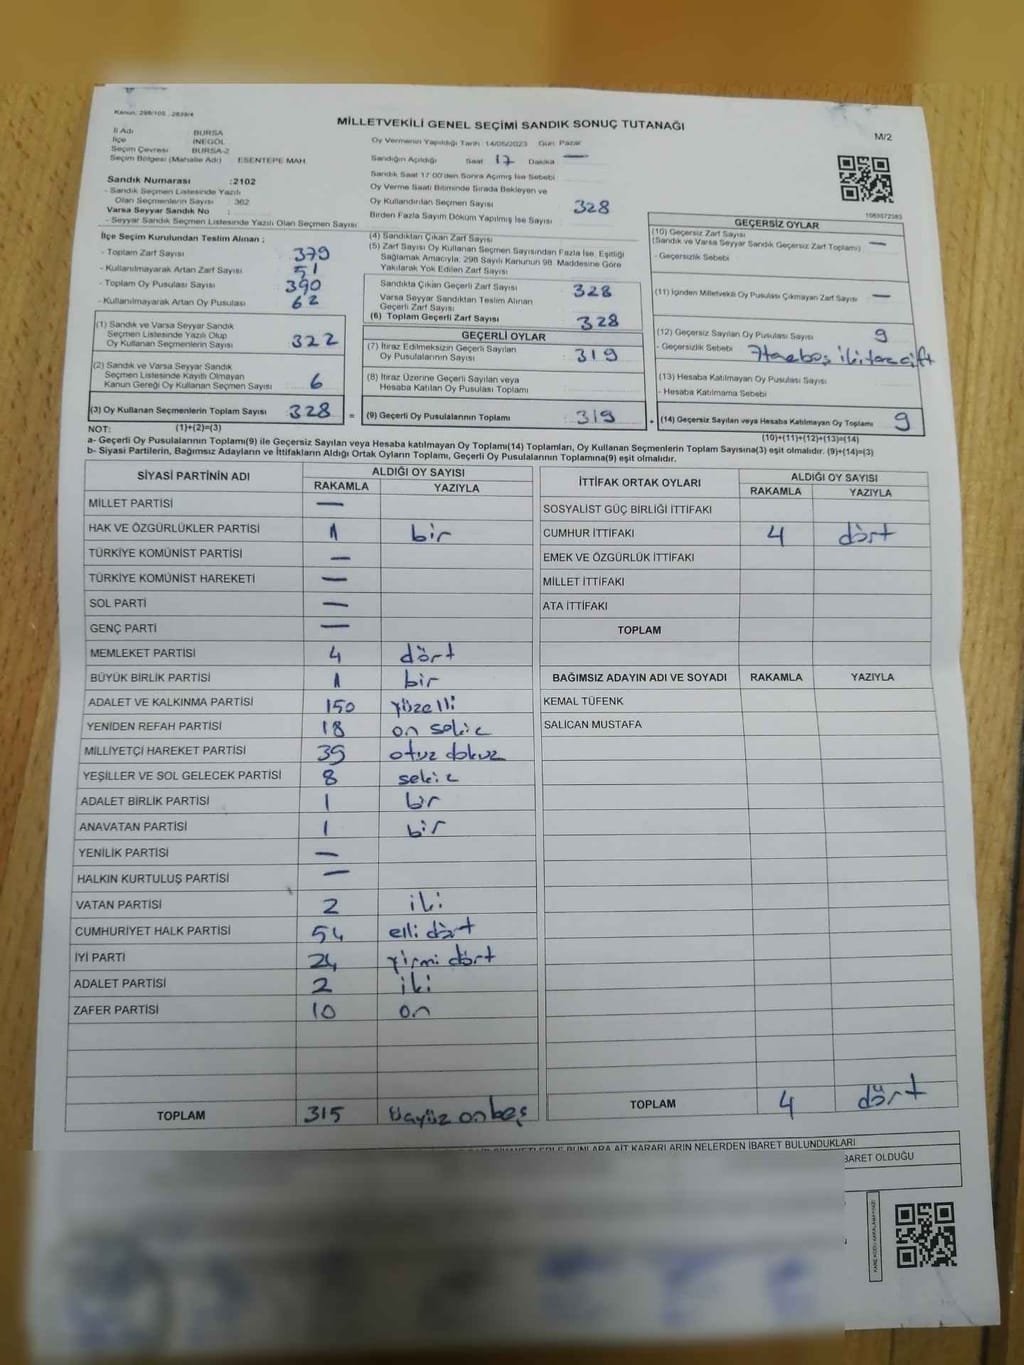 Kanun: 298/105 - 2839/4
MİLLETVEKİLİ GENEL SEÇİMİ SANDIK SONUÇ TUTANAĞI
M/2
İl Adı BURSA
İlçe İNEGÖL
Seçim Çevresi BURSA-2
Seçim Bölgesi (Mahalle Adı) ESENTEPE MAH.
Sandık Numarası :2102
- Sandık Seçmen Listesinde Yazılı
Olan Seçmenlerin Sayısı : 362
Varsa Seyyar Sandık No :
- Seyyar Sandık Seçmen Listesinde Yazılı Olan Seçmen Sayısı
Oy Vermenin Yapıldığı Tarih 14/05/2023 Gün Pazar
Sandığın Açıldığı Saat 17 Dakika —
Sandık Saat 17:00'den Sonra Açmış İse Sebebi
Oy Verme Saati Bitiminde Sırada Bekleyen ve
Oy Kullandırılan Seçmen Sayısı 328
Birden Fazla Sayım Döküm Yapılmış İse Sayısı
İlçe Seçim Kurulundan Teslim Alınan ;
- Toplam Zarf Sayısı 379
- Kullanılmayarak Artan Zarf Sayısı 51
- Toplam Oy Pusulası Sayısı 390
- Kullanılmayarak Artan Oy Pusulası 62
(1) Sandık ve Varsa Seyyar Sandık
Seçmen Listesinde Yazılı Olup
Oy Kullanan Seçmenlerin Sayısı 322
(2) Sandık ve Varsa Seyyar Sandık
Seçmen Listesinde Kayıtlı Olmayan
Kanun Gereği Oy Kullanan Seçmen Sayısı 6
(3) Oy Kullanan Seçmenlerin Toplam Sayısı 328 =
(4) Sandıktan Çıkan Zarf Sayısı
(5) Zarf Sayısı Oy Kullanan Seçmen Sayısından Fazla İse, Eşitliği
Sağlamak Amacıyla, 298 Sayılı Kanunun 98. Maddesine Göre
Yakılarak Yok Edilen Zarf Sayısı
Sandıkta Çıkan Geçerli Zarf Sayısı 328
Varsa Seyyar Sandıktan Teslim Alınan
Geçerli Zarf Sayısı
(6) Toplam Geçerli Zarf Sayısı 328
GEÇERLİ OYLAR
(7) İtiraz Edilmeksizin Geçerli Sayılan
Oy Pusulalarının Sayısı 319
(8) İtiraz Üzerine Geçerli Sayılan veya
Hesaba Katılan Oy Pusulası Toplamı
(9) Geçerli Oy Pusulalarının Toplamı 319 +
GEÇERSİZ OYLAR
(10) Geçersiz Zarf Sayısı
(Sandık ve Varsa Seyyar Sandık Geçersiz Zarf Toplamı) —
- Geçersizlik Sebebi
(11) İçinden Milletvekili Oy Pusulası Çıkmayan Zarf Sayısı —
(12) Geçersiz Sayılan Oy Pusulası Sayısı 9
- Geçersizlik Sebebi
(13) Hesaba Katılmayan Oy Pusulası Sayısı
- Hesaba Katılmama Sebebi
(14) Geçersiz Sayılan veya Hesaba Katılmayan Oy Toplamı 9
NOT: (1)+(2)=(3)
(10)+(11)+(12)+(13)=(14)
a- Geçerli Oy Pusulalarının Toplamı(9) ile Geçersiz Sayılan veya Hesaba katılmayan Oy Toplamı(14) Toplamları, Oy Kullanan Seçmenlerin Toplam Sayısına(3) eşit olmalıdır. (9)+(14)=(3)
b- Siyasi Partilerin, Bağımsız Adayların ve İttifakların Aldığı Ortak Oyların Toplamı, Geçerli Oy Pusulalarının Toplamına(9) eşit olmalıdır.
SİYASİ PARTİNİN ADI ALDIĞI OY SAYISI
RAKAMLA YAZIYLA
MİLLET PARTİSİ —
HAK VE ÖZGÜRLÜKLER PARTİSİ 1 bir
TÜRKİYE KOMÜNİST PARTİSİ —
TÜRKİYE KOMÜNİST HAREKETİ —
SOL PARTİ —
GENÇ PARTİ —
MEMLEKET PARTİSİ 4 dört
BÜYÜK BİRLİK PARTİSİ 1 bir
ADALET VE KALKINMA PARTİSİ 150 yüzelli
YENİDEN REFAH PARTİSİ 18 on sekiz
MİLLİYETÇİ HAREKET PARTİSİ 39 otuz dokuz
YEŞİLLER VE SOL GELECEK PARTİSİ 8 sekiz
ADALET BİRLİK PARTİSİ 1 bir
ANAVATAN PARTİSİ 1 bir
YENİLİK PARTİSİ —
HALKIN KURTULUŞ PARTİSİ —
VATAN PARTİSİ 2 iki
CUMHURİYET HALK PARTİSİ 54 elli dört
İYİ PARTİ 24 yirmi dört
ADALET PARTİSİ 2 iki
ZAFER PARTİSİ 10 on
TOPLAM 315 üçyüz onbeş
İTTİFAK ORTAK OYLARI ALDIĞI OY SAYISI
RAKAMLA YAZIYLA
SOSYALİST GÜÇ BİRLİĞİ İTTİFAKI
CUMHUR İTTİFAKI 4 dört
EMEK VE ÖZGÜRLÜK İTTİFAKI
MİLLET İTTİFAKI
ATA İTTİFAKI
TOPLAM
BAĞIMSIZ ADAYIN ADI VE SOYADI RAKAMLA YAZIYLA
KEMAL TÜFENK
SALİCAN MUSTAFA
TOPLAM 4 dört
BUNLARA AİT KARARLARIN NELERDEN İBARET BULUNDUKLARI
İBARET OLDUĞU